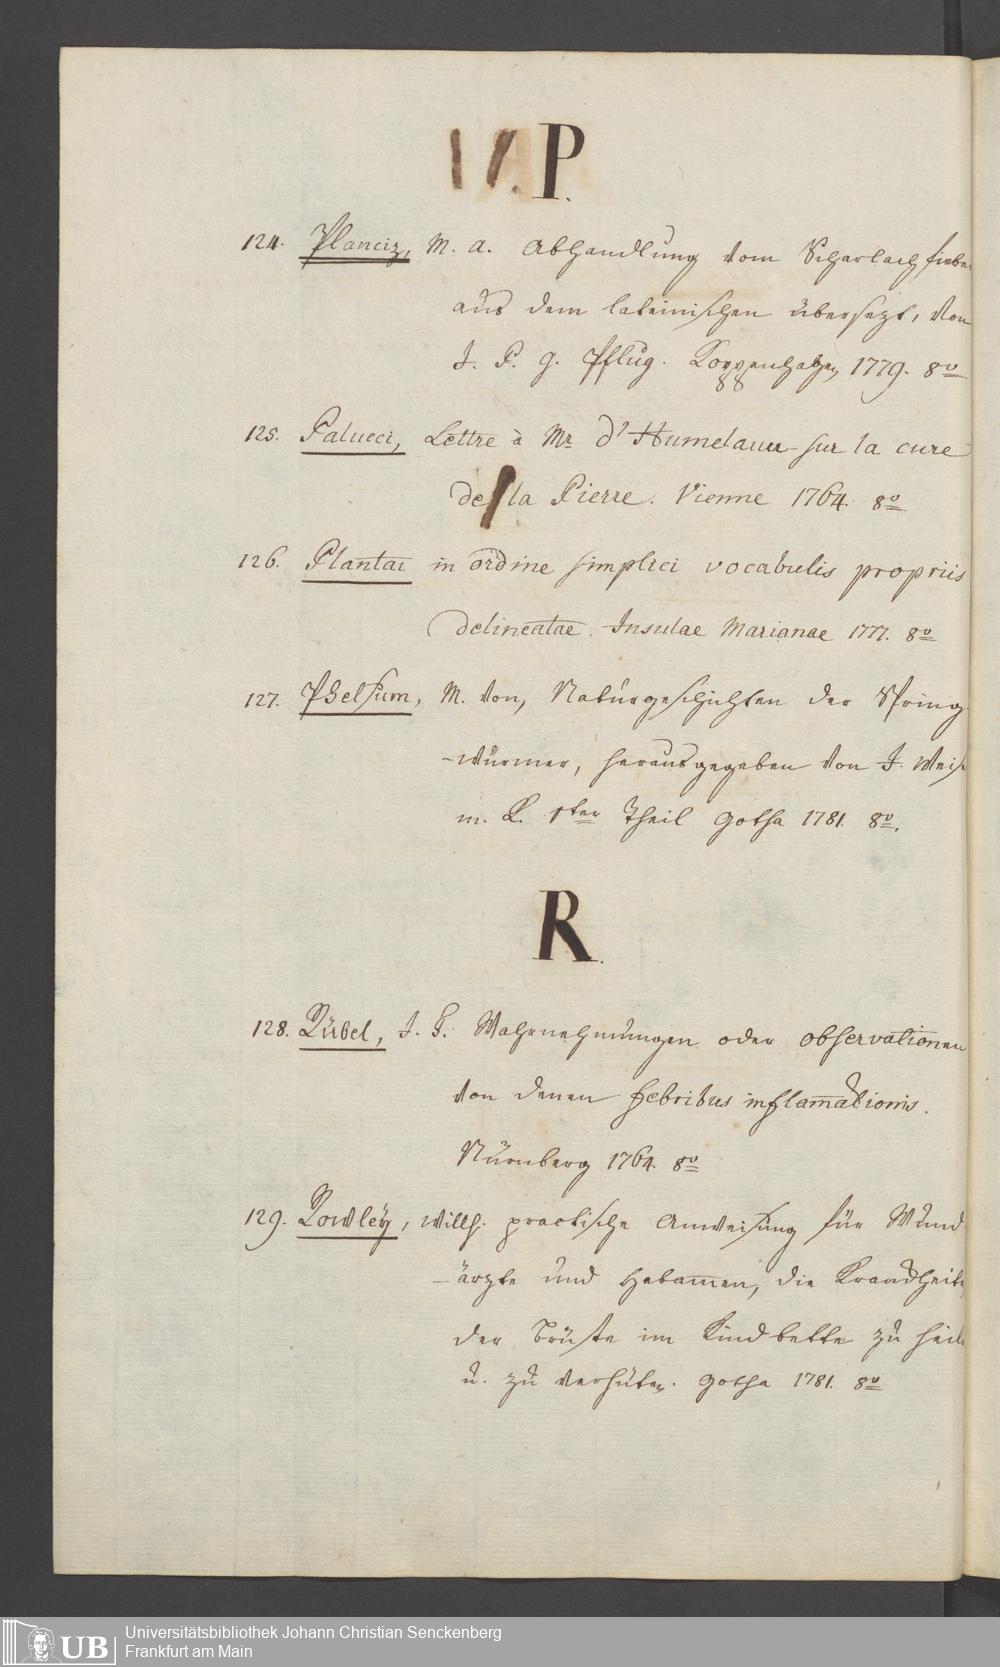 P.
124. Planciz, M. A. Abhandlung vom Scharlachfieber
aus dem lateinischen übersezt, von
J. P. G. Pflug. Koppenhagen 1779. 8º
125. Palucci, Lettre à Mr d' Humelauer sur la cure
de la Pierre. Vienne 1764. 8º
126. Plantae in ordine simplici vocabulis propriis
delineatae. Insulae Marianae 1777. 8º
127. Phelsum, M. von, Naturgeschichten der Spring
-würmer, herausgegeben von J. Weiss
m. K. 1ter Theil Gotha 1781. 8º.
R.
128. Rübel, J. F. Wahrnehmungen oder observationen
von denen febribus inflam̄ationis.
Nürnberg 1764. 8º
129. Rowley, Willh. practische Anweisung für Wund
-ärzte und Hebam̄en, die Krankheiten
der Brüste im Kindbette zu heilen
u. zu verhüten. Gotha 1781. 8º
UB
Universitätsbibliothek Johann Christian Senckenberg
Frankfurt am Main